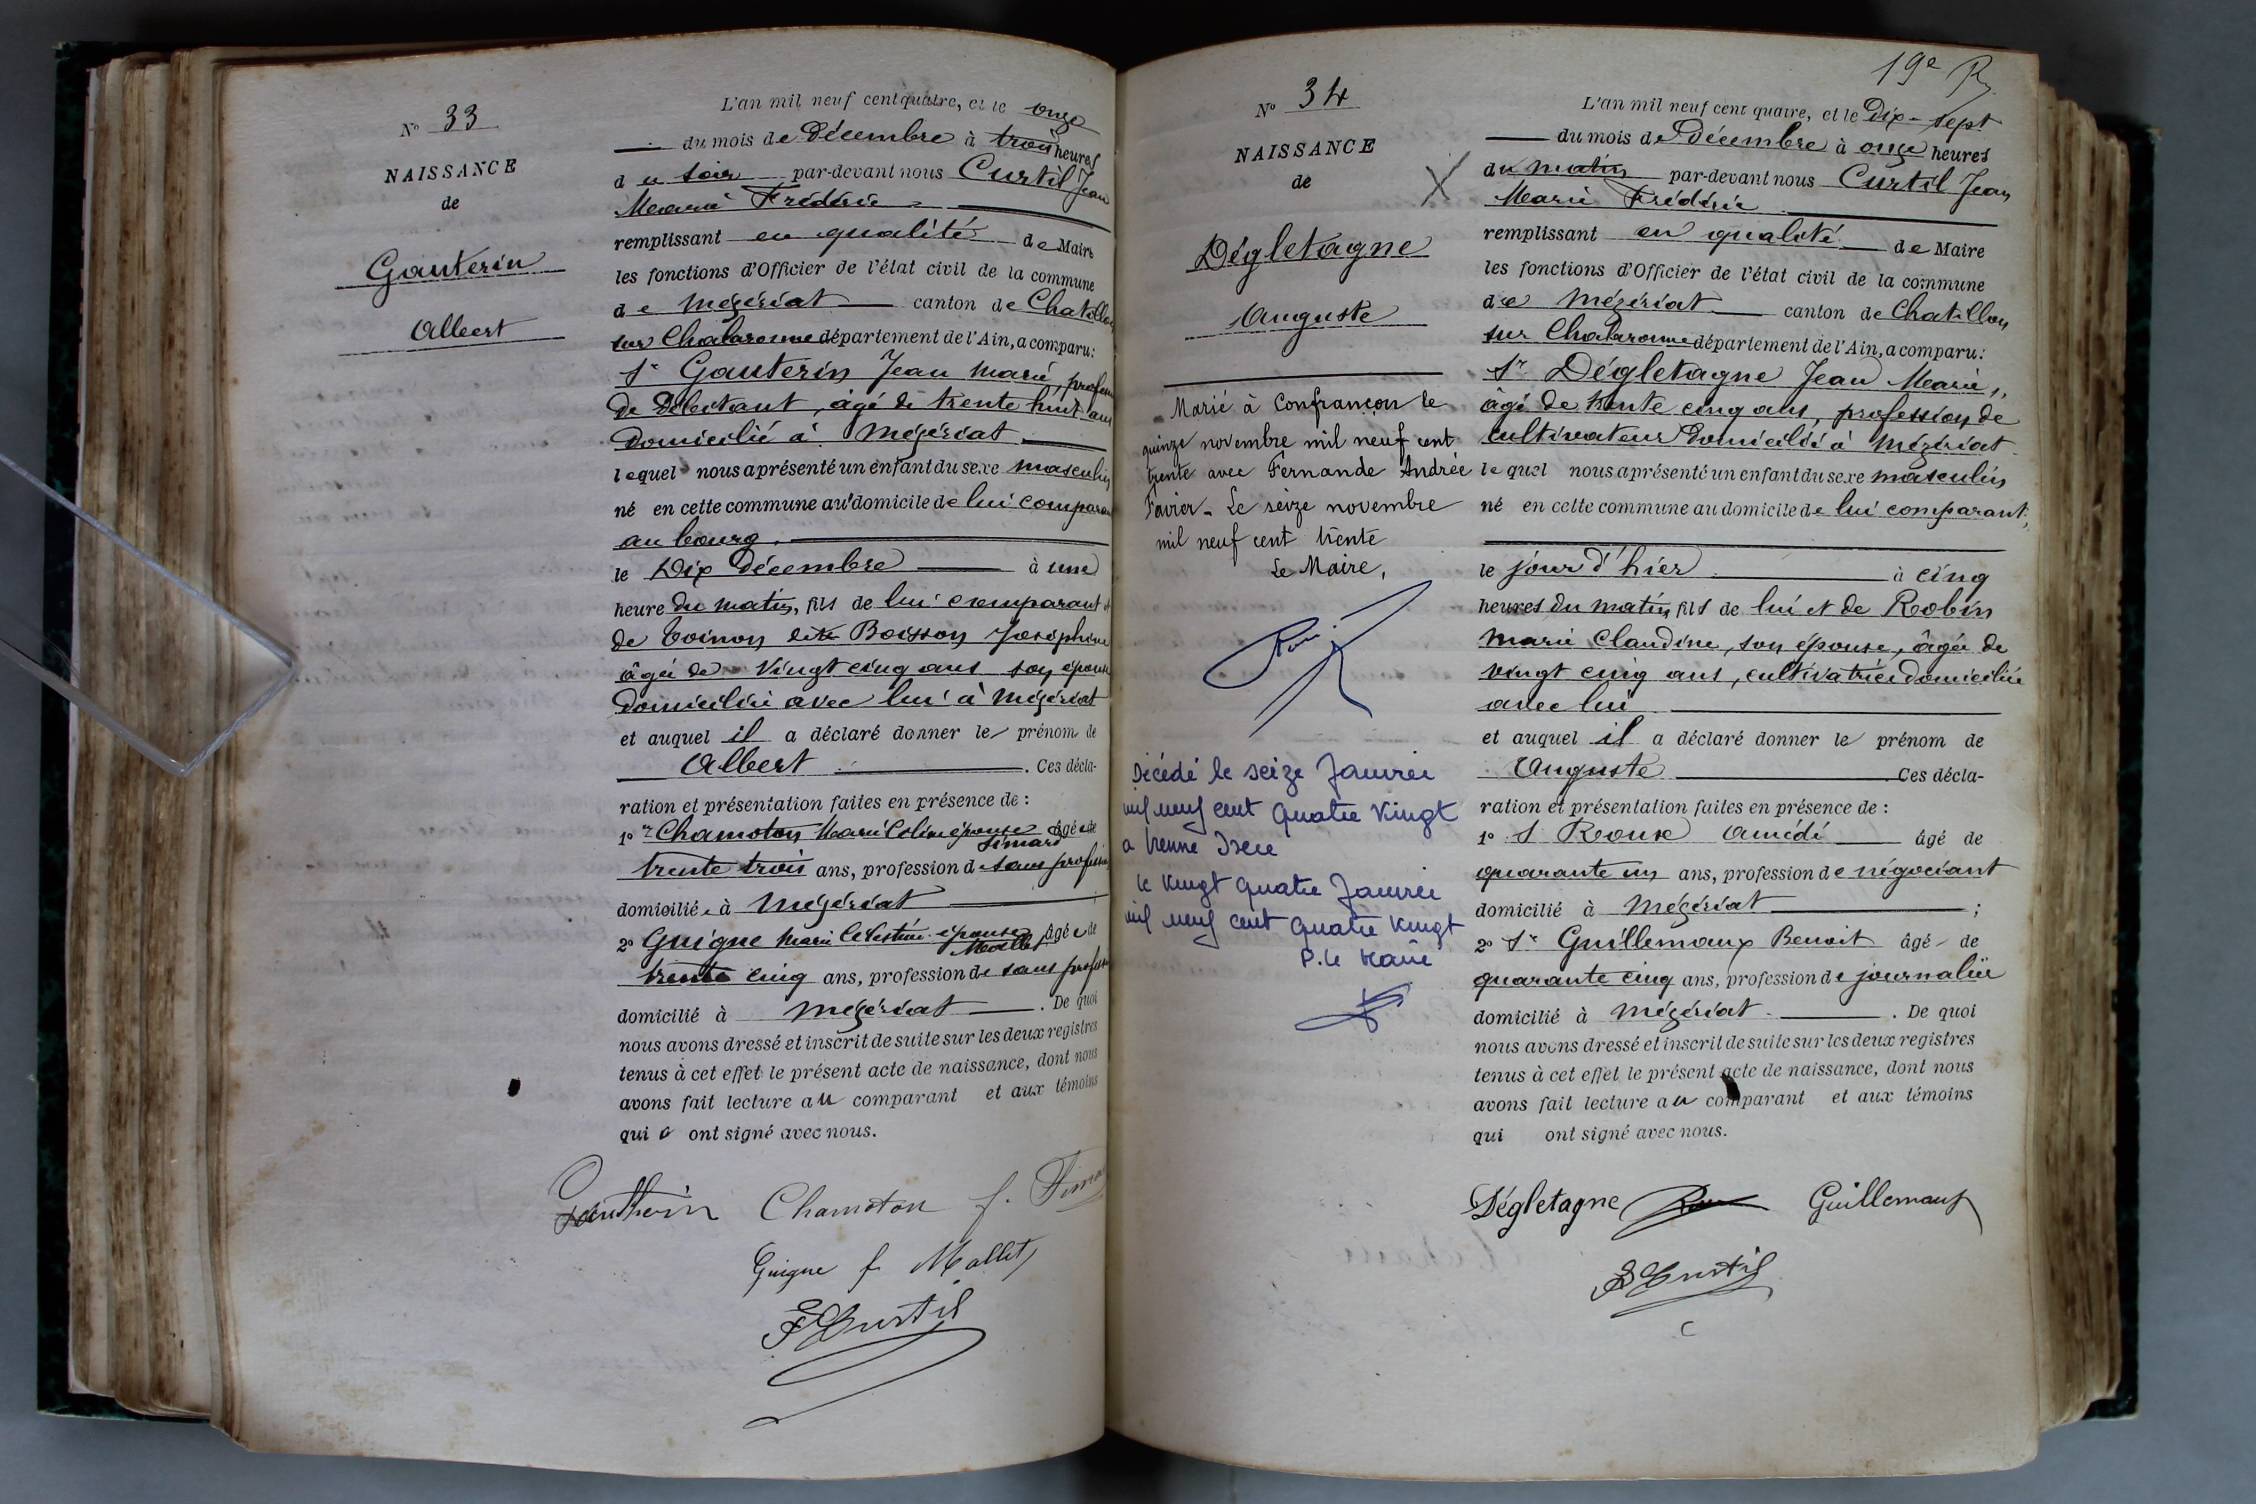 N° 33
NAISSANCE
de
Gauterin
Albert
L'an mil neuf cent quatre, et le onze
du mois de Décembre à trois heures
du soir par-devant nous Curtil Jean
Marie Frédéric
remplissant en qualité de Maire
les fonctions d'Officier de l'état civil de la commune
de Mézériat canton de Chatillon
sur Chalaronne département de l'Ain, a comparu:
Sr Gauterin Jean Marie, profession
de Débitant, âgé de trente huit ans
domicilié à Mézériat
lequel nous a présenté un enfant du sexe masculin
né en cette commune au domicile de lui comparant
au bourg.
le Dix décembre à une
heure du matin, fils de lui comparant et
de Toinon dite Boisson Joséphine
âgée de vingt cinq ans son épouse
domiciliée avec lui à Mézériat
et auquel il a déclaré donner le prénom de
Albert. Ces décla-
ration et présentation faites en présence de :
1° Chamoton Marie épouse Simard âgée de
trente trois ans, profession de sans profession
domiciliée à Mézériat
2° Guigne Marie Célestine épouse Mollet âgée de
trente cinq ans, profession de sans profession
domicilié à Mézériat. De quoi
nous avons dressé et inscrit de suite sur les deux registres
tenus à cet effet le présent acte de naissance, dont nous
avons fait lecture au comparant et aux témoins
qui ont signé avec nous.
Gauthérin Chamoton f.
Guigne f Mollet
F Curtil
19e
N° 34
NAISSANCE
de
Dégletagne
Auguste
Marié à Confrançon le
quinze novembre mil neuf cent
trente avec Fernande Andrée
Favier - Le seize novembre
mil neuf cent trente
Le Maire,
Décédé le seize Janvier
mil neuf cent quatre vingt
a Vienne Isere
le vingt quatre Janvier
mil neuf cent quatre vingt
P. le Maire
X
L'an mil neuf cent quatre, et le Dix-sept
du mois de Décembre à onze heures
du matin par-devant nous Curtil Jean
Marie Frédéric
remplissant en qualité de Maire
les fonctions d'Officier de l'état civil de la commune
de Mézériat canton de Chatillon
sur Chalaronne département de l'Ain, a comparu:
Sr Dégletagne Jean Marie,
âgé de trente cinq ans, profession de
cultivateur domicilié à Mézériat
lequel nous a présenté un enfant du sexe masculin
né en cette commune au domicile de lui comparant,
le jour d'hier à cinq
heures du matin fils de lui et de Robin
Marie Claudine, son épouse, âgée de
vingt cinq ans, cultivatrice domiciliée
avec lui
et auquel il a déclaré donner le prénom de
Auguste. Ces décla-
ration et présentation faites en présence de :
1° S Roux Amédé âgé de
quarante un ans, profession de négociant
domicilié à Mézériat ;
2° Sr Guillemaux Benoit âgé de
quarante cinq ans, profession de journalier
domicilié à Mézériat. De quoi
nous avons dressé et inscrit de suite sur les deux registres
tenus à cet effet le présent acte de naissance, dont nous
avons fait lecture au comparant et aux témoins
qui ont signé avec nous.
Dégletagne Roux Guillemaux
F Curtil